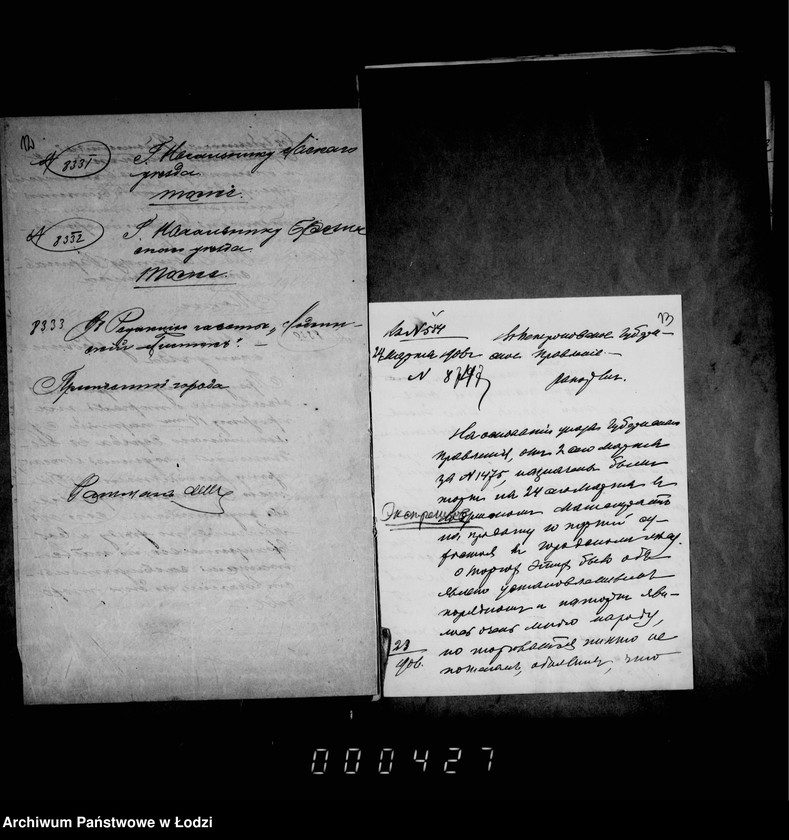 12
8331 Г. Начальнику Ласкаго
уезда
тоже.
8332 Г. Начальнику Брезин-
скаго уезда
тоже.
8333 В Редакцию газеты „Лодзин-
ский Листок". —
Президент города
13
На № 544
24 Марта 1906 г.
№ 8747
В Петроковское Губерн-
ское Правление.
рапорт.
На основании указа Губернскаго
Правления, от 2 сего Марта
за № 1475, назначены были
торги на 24 сего Марта в
Магистрате
на продажу 10 партий
в городском лесу.
О торгах этих было объ-
явлено установленным
порядком и на торги яви-
лось очень много народу,
но торговаться никто не
пожелал, объявив, что
28
906.
000427
Archiwum Państwowe w Łodzi